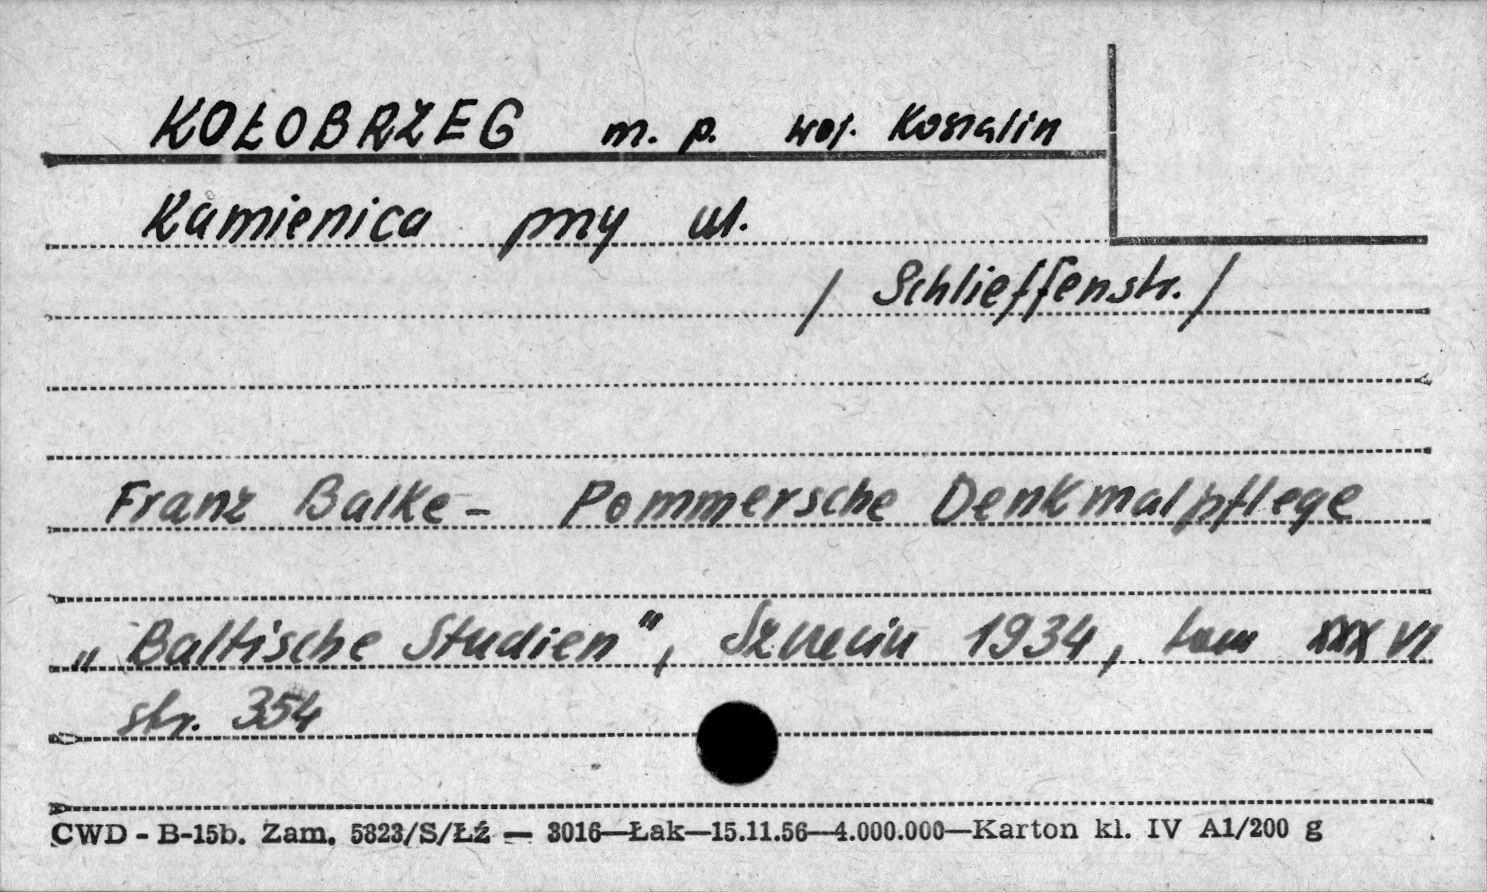 KOŁOBRZEG m. p. woj. Koszalin
Kamienica przy ul.
/ Schlieffenstr. /
Franz Balke - Pommersche Denkmalpflege
„Baltische Studien”, Szczecin 1934, tom XXXVI
str. 354
CWD - B-15b. Zam. 5823/S/Łź — 3016—Łak—15.11.56—4.000.000—Karton kl. IV A1/200 g